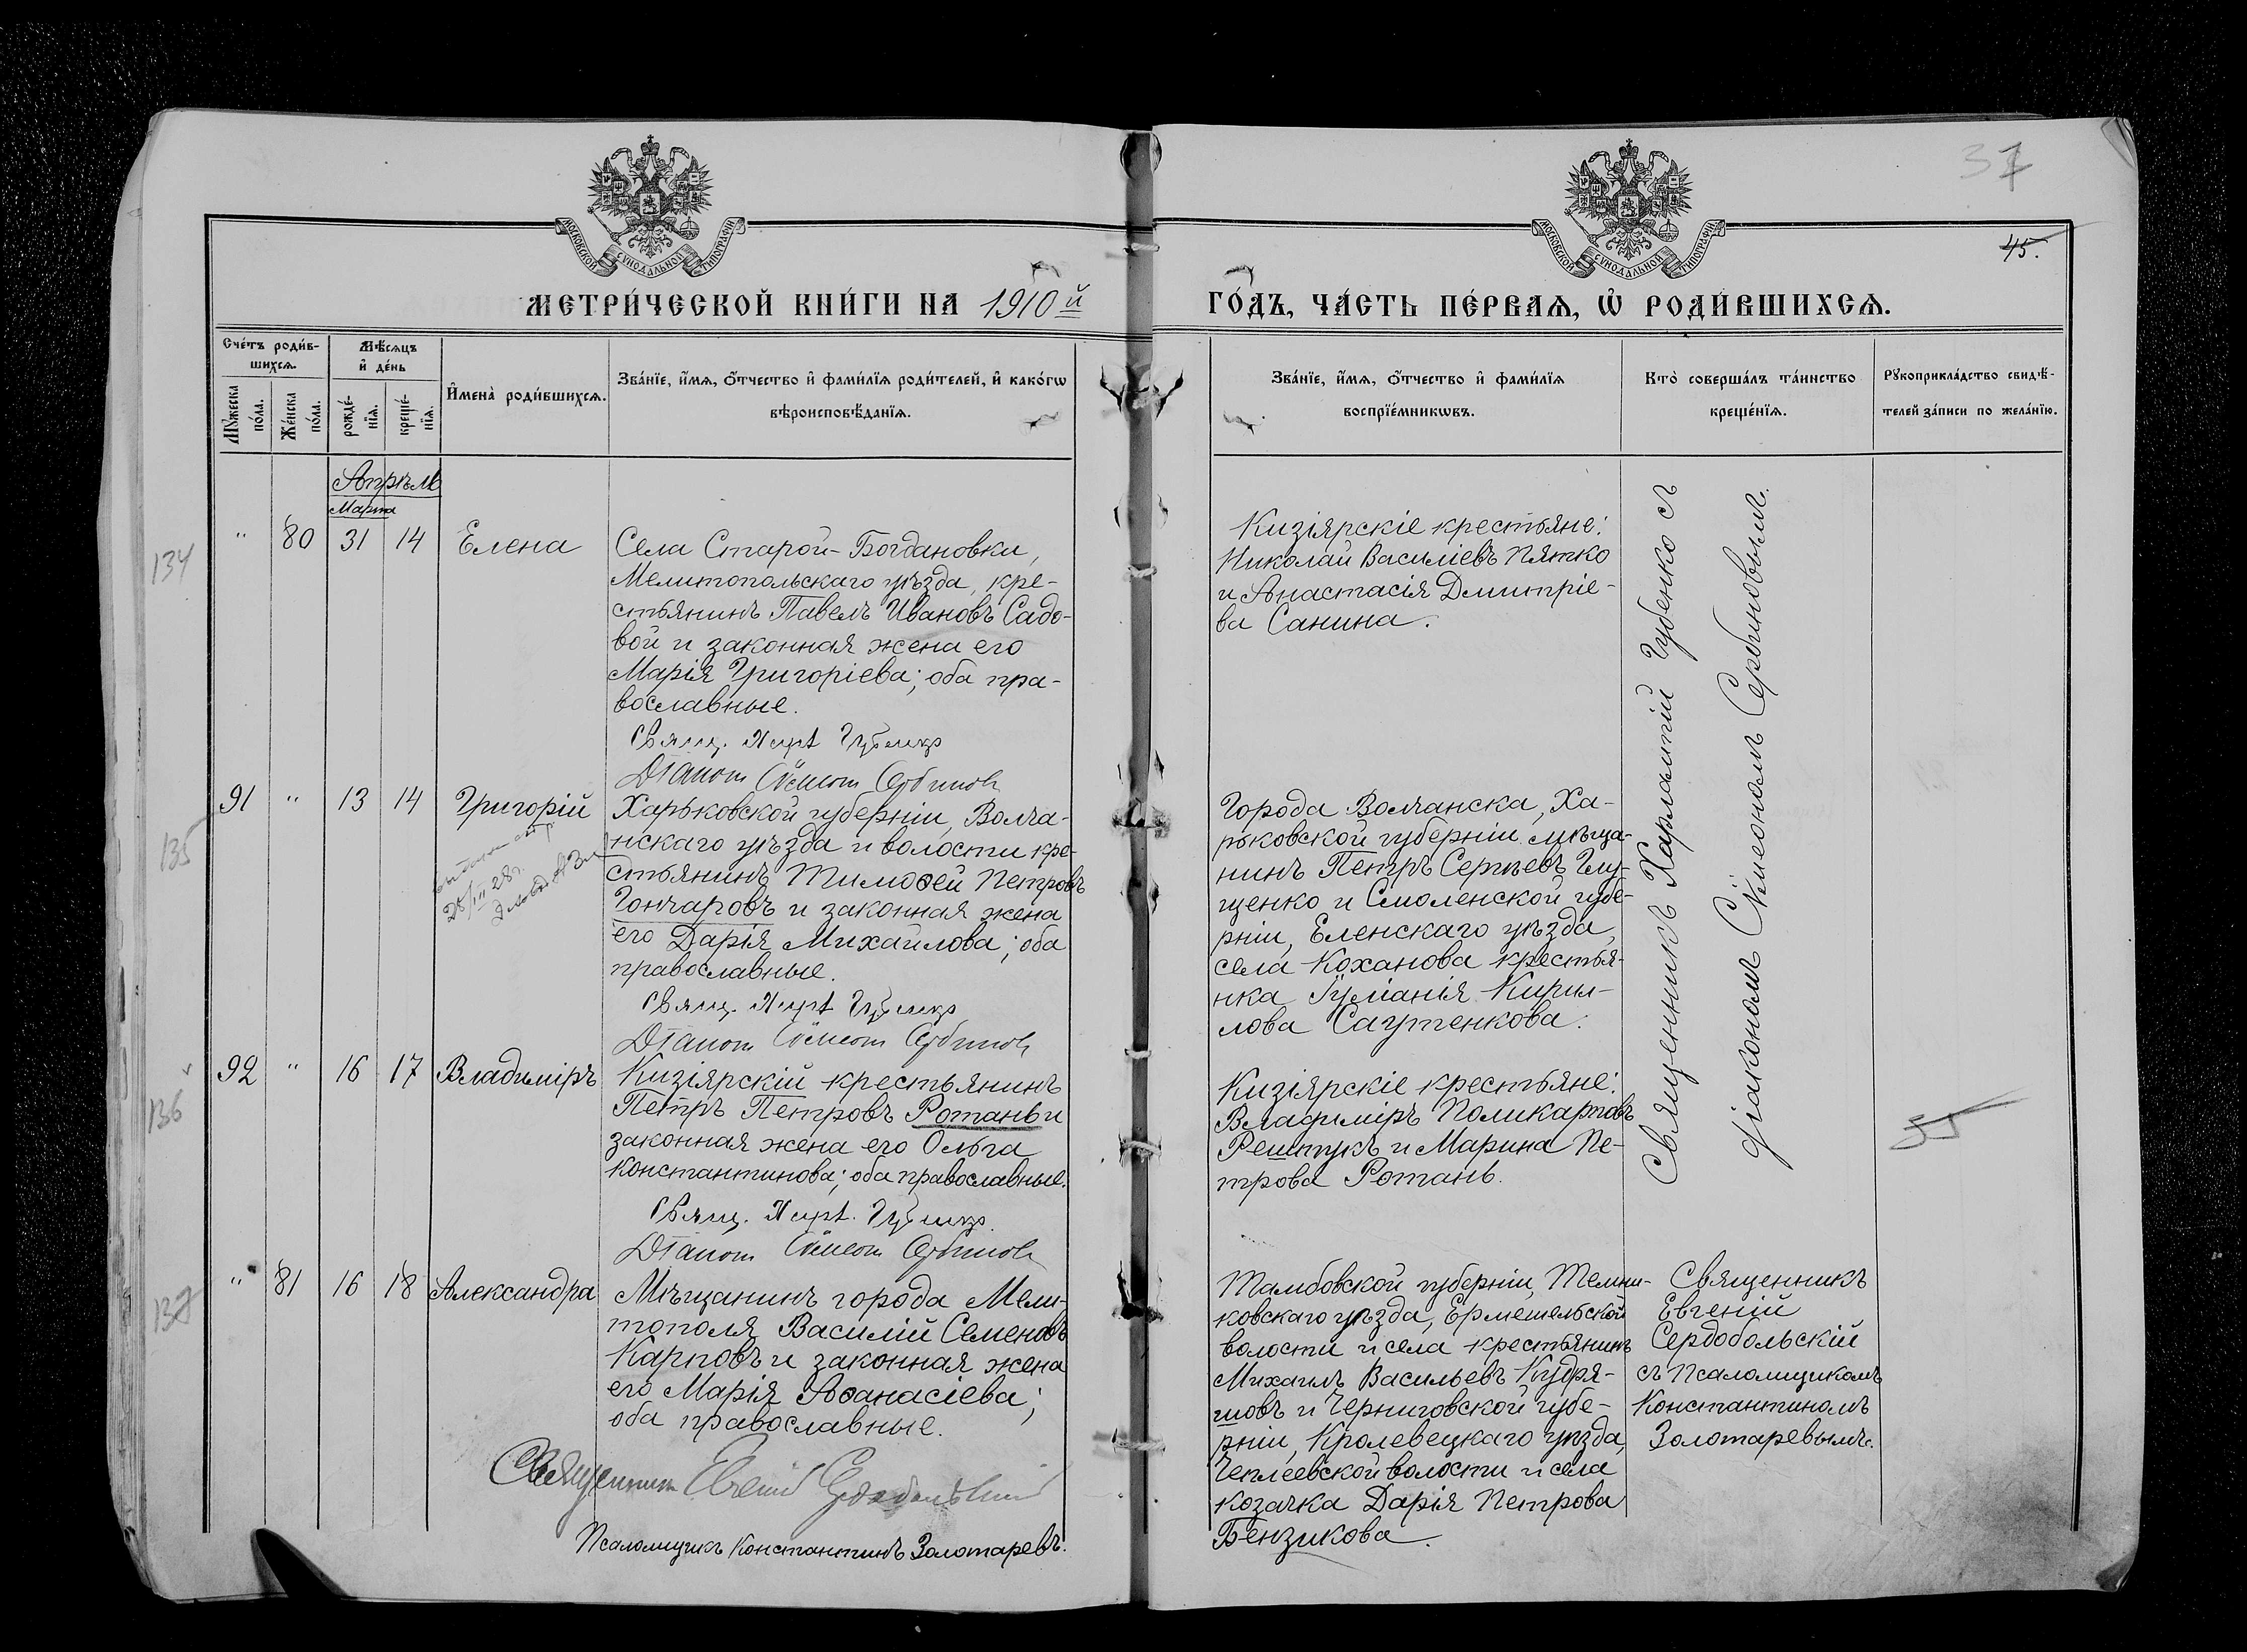 37
45.
МОСКОВСКОЙ СѴНОДАЛЬНОЙ ТИПОГРАФІИ
МОСКОВСКОЙ СѴНОДАЛЬНОЙ ТИПОГРАФІИ
МЕТРИ́ЧЕСКОЙ КНИ́ГИ НА 1910 й
ГО́ДЪ, ЧА́СТЬ ПЕ́РВАѦ, Ѡ҆ РОДИ́ВШИХСѦ.
Сче́тъ роди́в-
шихсѧ.
Мꙋ́жеска по́ла.
Же́нска по́ла.
Мѣ́сѧцъ
и҆ де́нь
рожде́-
нїѧ.
креще́-
нїѧ.
И҆мена̀ роди́вшихсѧ.
Зва́нїе, и҆́мѧ, ѻ҆́тчество и҆ фами́лїѧ роди́телей, и҆ како́гѡ
вѣроисповѣ́данїѧ.
Зва́нїе, и҆́мѧ, ѻ҆́тчество и҆ фами́лїѧ
воспрїе́мникѡвъ.
Кто̀ соверша́лъ та́инство
креще́нїѧ.
Рꙋкоприкла́дство свидѣ́-
телей за́писи по жела́нїю.
Апрѣль
Марта
134
" 80 31 14 Елена
Села Старой-Богдановки,
Мелитопольскаго уѣзда, кре-
стьянинъ Павелъ Ивановъ Садо-
вой и законная жена его
Марія Григоріева; оба пра-
вославные.
Свящ. Харл. Губенко
Діаконъ Сѵмеонъ Сербиновъ
Кизіярскіе крестьяне:
Николай Василіевъ Пятко
и Анастасія Димитріе-
ва Санина.
Священникъ Харлампій Губенко съ
діакономъ Сѵмеономъ Сербиновымъ.
135
91 " 13 14 Григорій
28г.
Харьковской губерніи, Волча-
нскаго уѣзда и волости кре-
стьянинъ Тимоѳей Петровъ
Гончаровъ и законная жена
его Дарія Михайлова; оба
православные.
Свящ. Харл. Губенко
Діаконъ Сѵмеонъ Сербиновъ
Города Волчанска, Ха-
рьковской губерніи мѣща-
нинъ Петръ Сергѣевъ Глу-
щенко и Смоленской губе-
рніи, Еленскаго уѣзда,
села Коханова крестья-
нка Іуліанія Кирил-
лова Саутенкова.
136
92 " 16 17 Владиміръ
Кизіярскій крестьянинъ
Петръ Петровъ Ротань и
законная жена его Ольга
Константинова; оба православные.
Свящ. Харл. Губенко
Діаконъ Сѵмеонъ Сербиновъ
Кизіярскіе крестьяне:
Владиміръ Поликарповъ
Рештукъ и Марина Пе-
трова Ротань.
35
137
" 81 16 18 Александра
Мѣщанинъ города Мели-
тополя Василій Семеновъ
Карповъ и законная жена
его Марія Аѳанасіева;
оба православные.
Священникъ Евгеній Сердобольскій
Псаломщикъ Константинъ Золотаревъ.
Тамбовской губерніи, Темни-
ковскаго уѣзда, Ермешельской
волости и села крестьянинъ
Михаилъ Васильевъ Кудря-
шовъ и Черниговской губе-
рніи, Кролевецкаго уѣзда,
Чеплеевской волости и села
козачка Дарія Петрова
Бензикова.
Священникъ
Евгеній
Сердобольскій
съ псаломщикомъ
Константиномъ
Золотаревымъ.